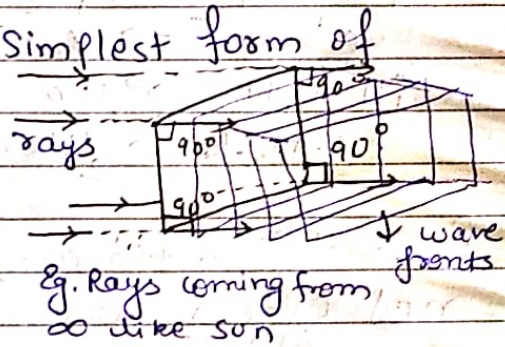 Simplest form of
90°
rays
90°
90°
90°
wave
fronts
Eg. Rays coming from
∞ like sun